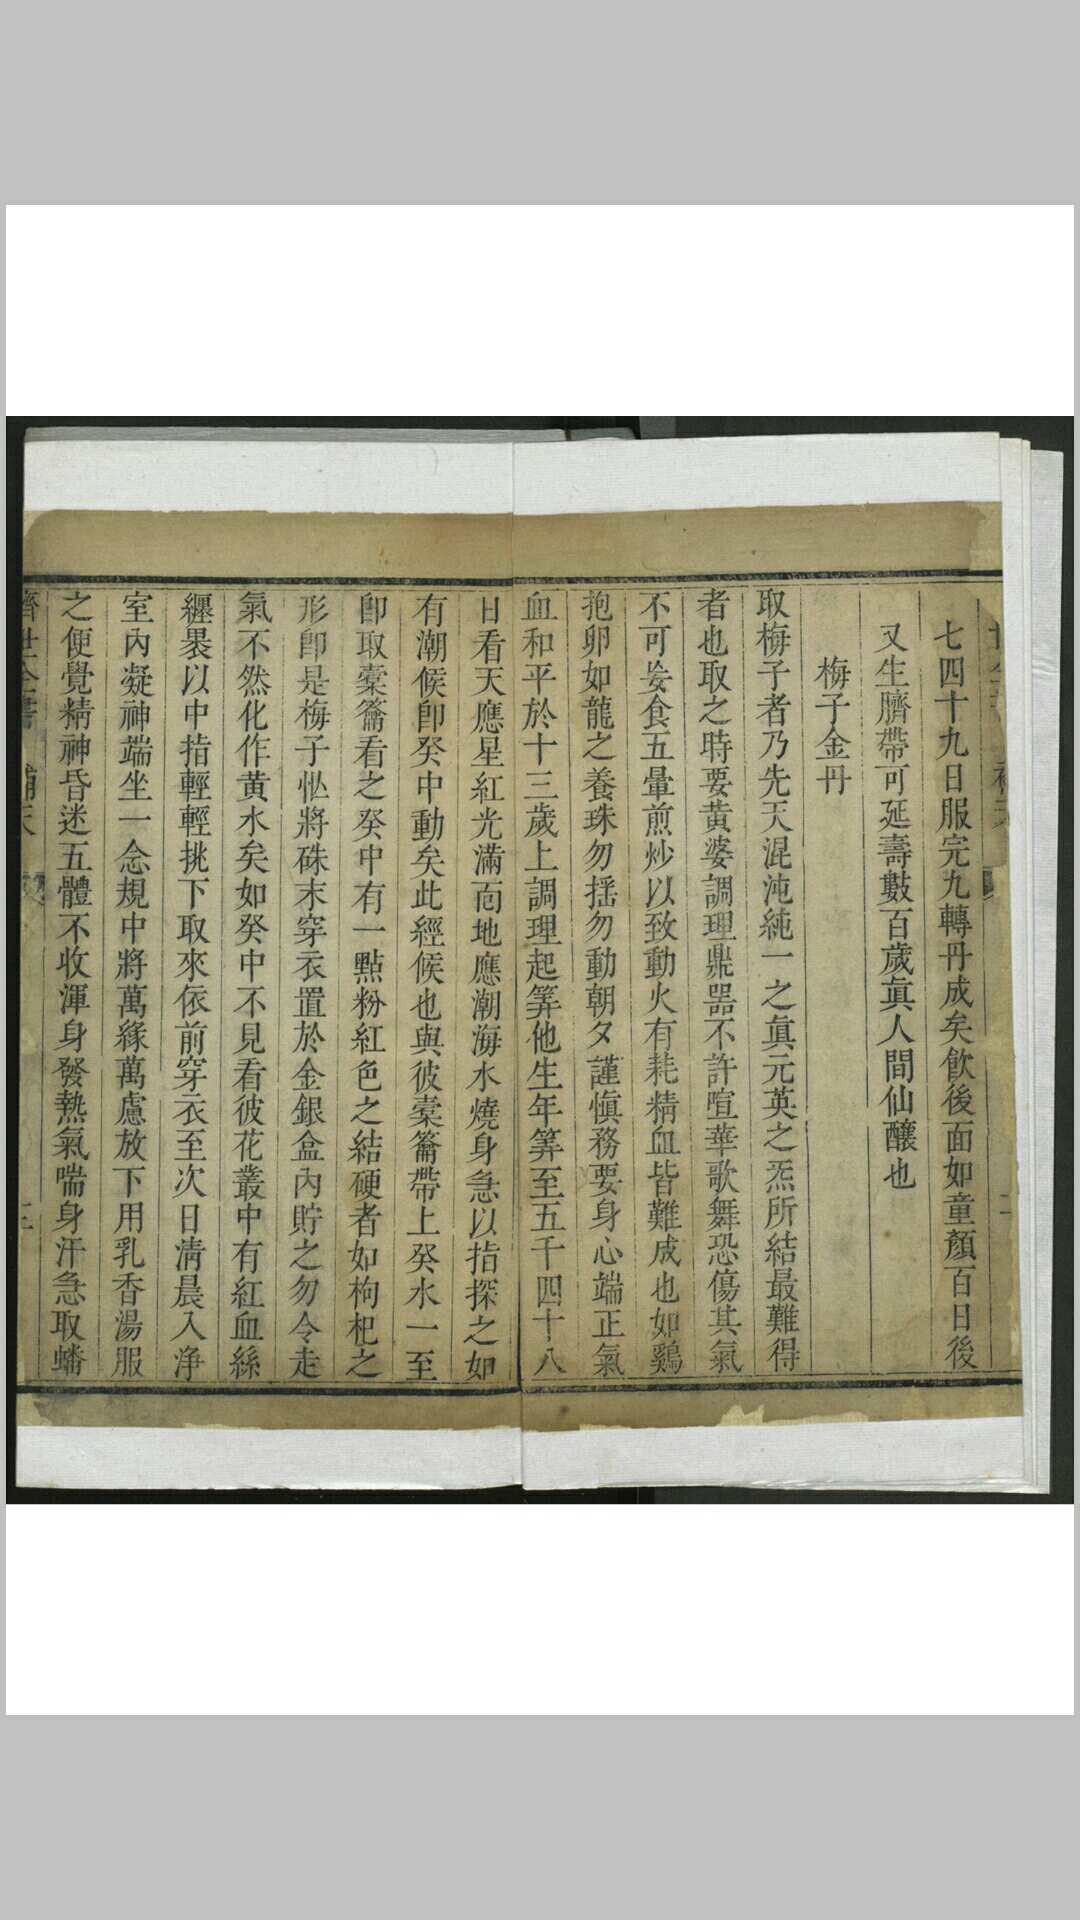 七四十九日服完九轉丹成矣飲後面如童顏百日後
又生臍帶可延壽數百歲眞人間仙釀也
梅子金丹
取梅子者乃先天混沌純一之眞元英之炁所結最難得
者也取之時要黄婆調理鼎噐不許喧華歌舞恐傷其氣
不可妄食五暈煎炒以致動火有耗精血皆難成也如鷄
抱卵如龍之養珠勿揺勿動朝夕謹愼務要身心端正氣
血和平於十三歲上調理起筭他生年筭至五千四十八
日看天應星紅光滿面地應潮海水燒身急以指探之如
有潮候卽癸中動矣此經候也與彼槖籥帶上癸水一至
卽取槖籥看之癸中有一點粉紅色之結硬者如枸杞之
形卽是梅子忙將硃末穿衣置於金銀盒內貯之勿令走
氣不然化作黄水矣如癸中不見看彼花叢中有紅血絲
纒褁以中指輕輕挑下取來依前穿衣至次日清晨入淨
室內凝神端坐一念規中將萬緣萬慮放下用乳香湯服
之便覺精神昏迷五體不收渾身發熱氣喘身汗急取蟠
濟世全書 補天